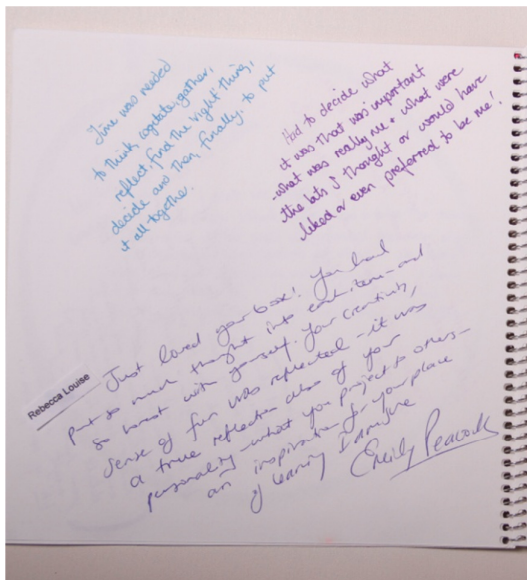 Time was needed
to think, cogitate, gather,
reflect, find the 'right' thing,
decide and then, finally, to put
it all together.
Had to decide what
it was that was important
-what was really me & what were
the bits I thought or would have
liked or even preferred to be me!
Rebecca Louise
Just loved your box! You had
put so much thought into each item - and
so honest with yourself. Your creativity,
sense of fun was reflected - it was
a true reflection also of your
personality - what you project to others -
an inspiration for your place
of learning I imagine
Emily Peacock